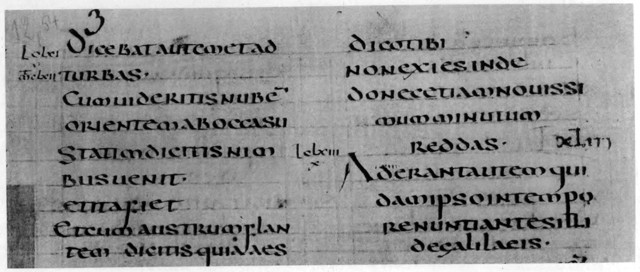 DICEBATAUTEMETAD
TURBAS·
CUMUIDERITISNUBE̅
ORIENTEMABOCCASU
STATIMDICITISNIM
BUSUENIT·
ETITAFIET
ETCUMAUSTRUMFLAN
TEM DICITISQUIAAES
DICOTIBI
NONEXIESINDE
DONECETIAMNOUISSI
MUMMINUTUM
REDDAS·
ADERANTAUTEMQUI
DAMIPSOINTEMPO
RENUNTIANTESILLI
DEGALILAEIS·